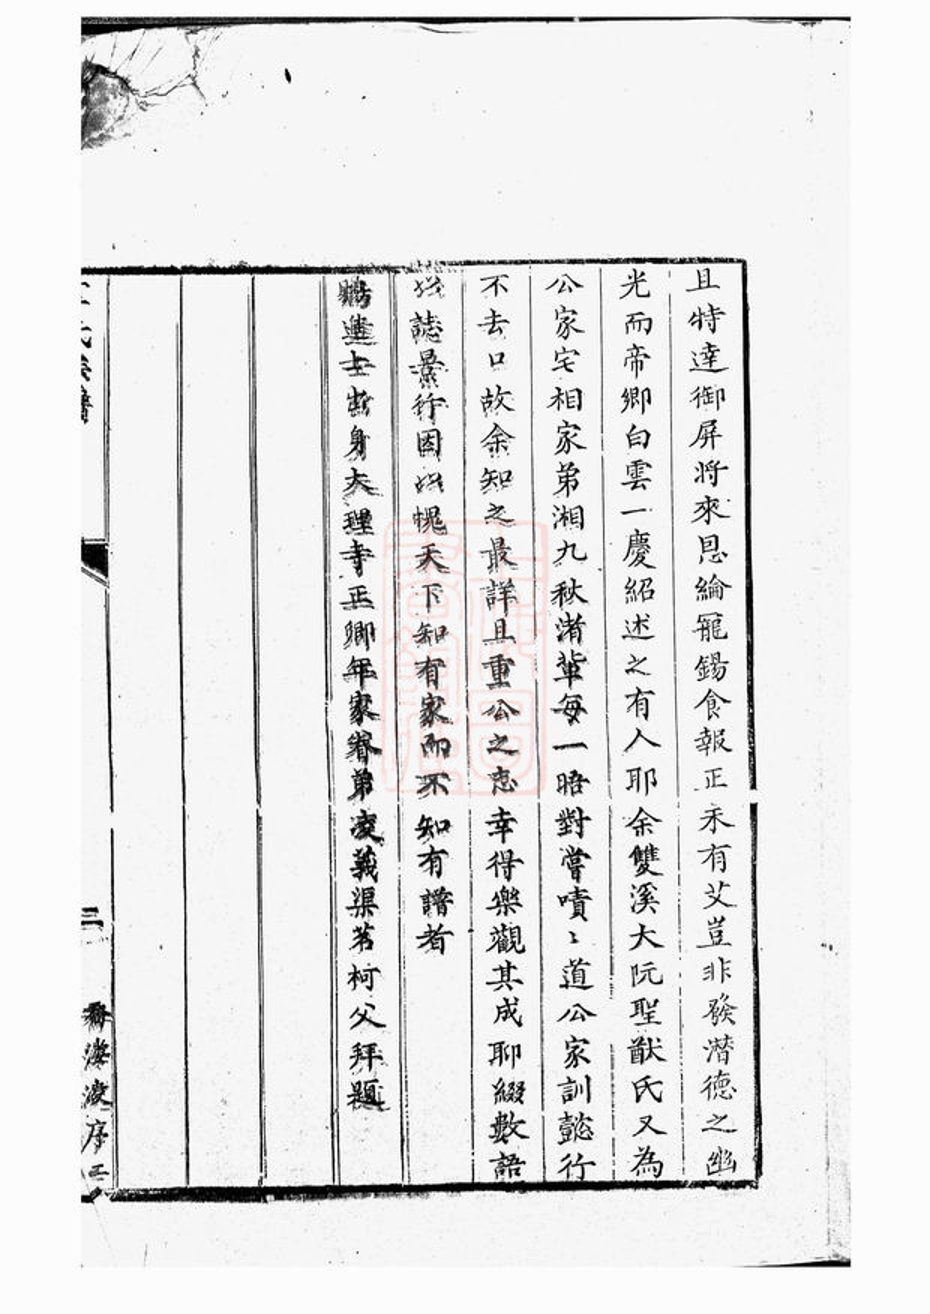 且特達御屏將來恩綸寵錫食報正未有艾豈非發潛德之幽
光而帝鄉白雲一慶紹述之有人耶余雙溪大阮聖猷氏又為
公家宅相家弟湘九秋渚輩每一晤對嘗嘖〻道公家訓懿行
不去口故余知之最詳且重公之志幸得樂觀其成聊綴數語
誌景行因愧天下知有家而不知有譜者
賜進士出身大理寺正卿年家眷弟凌義渠茗柯父拜題
氏宗譜
三
序三